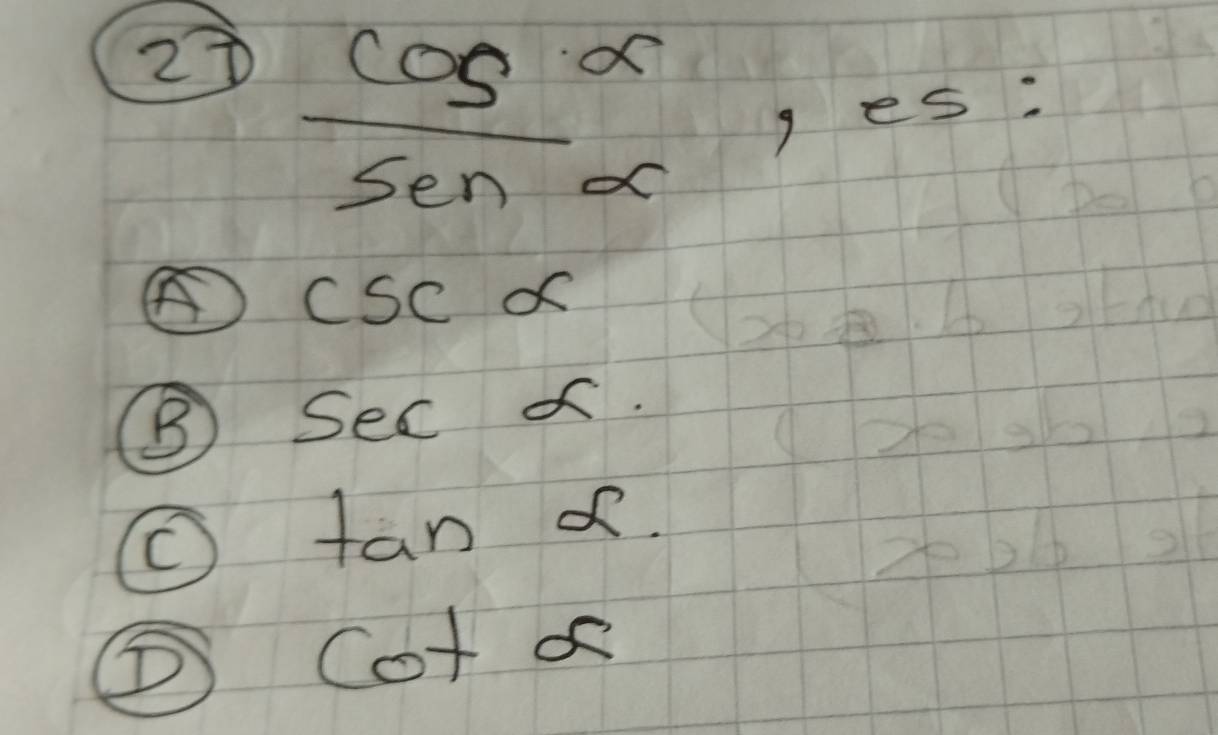 27 cos α
sen α , es:
A csc α
B sec α.
C tan α.
D cot α